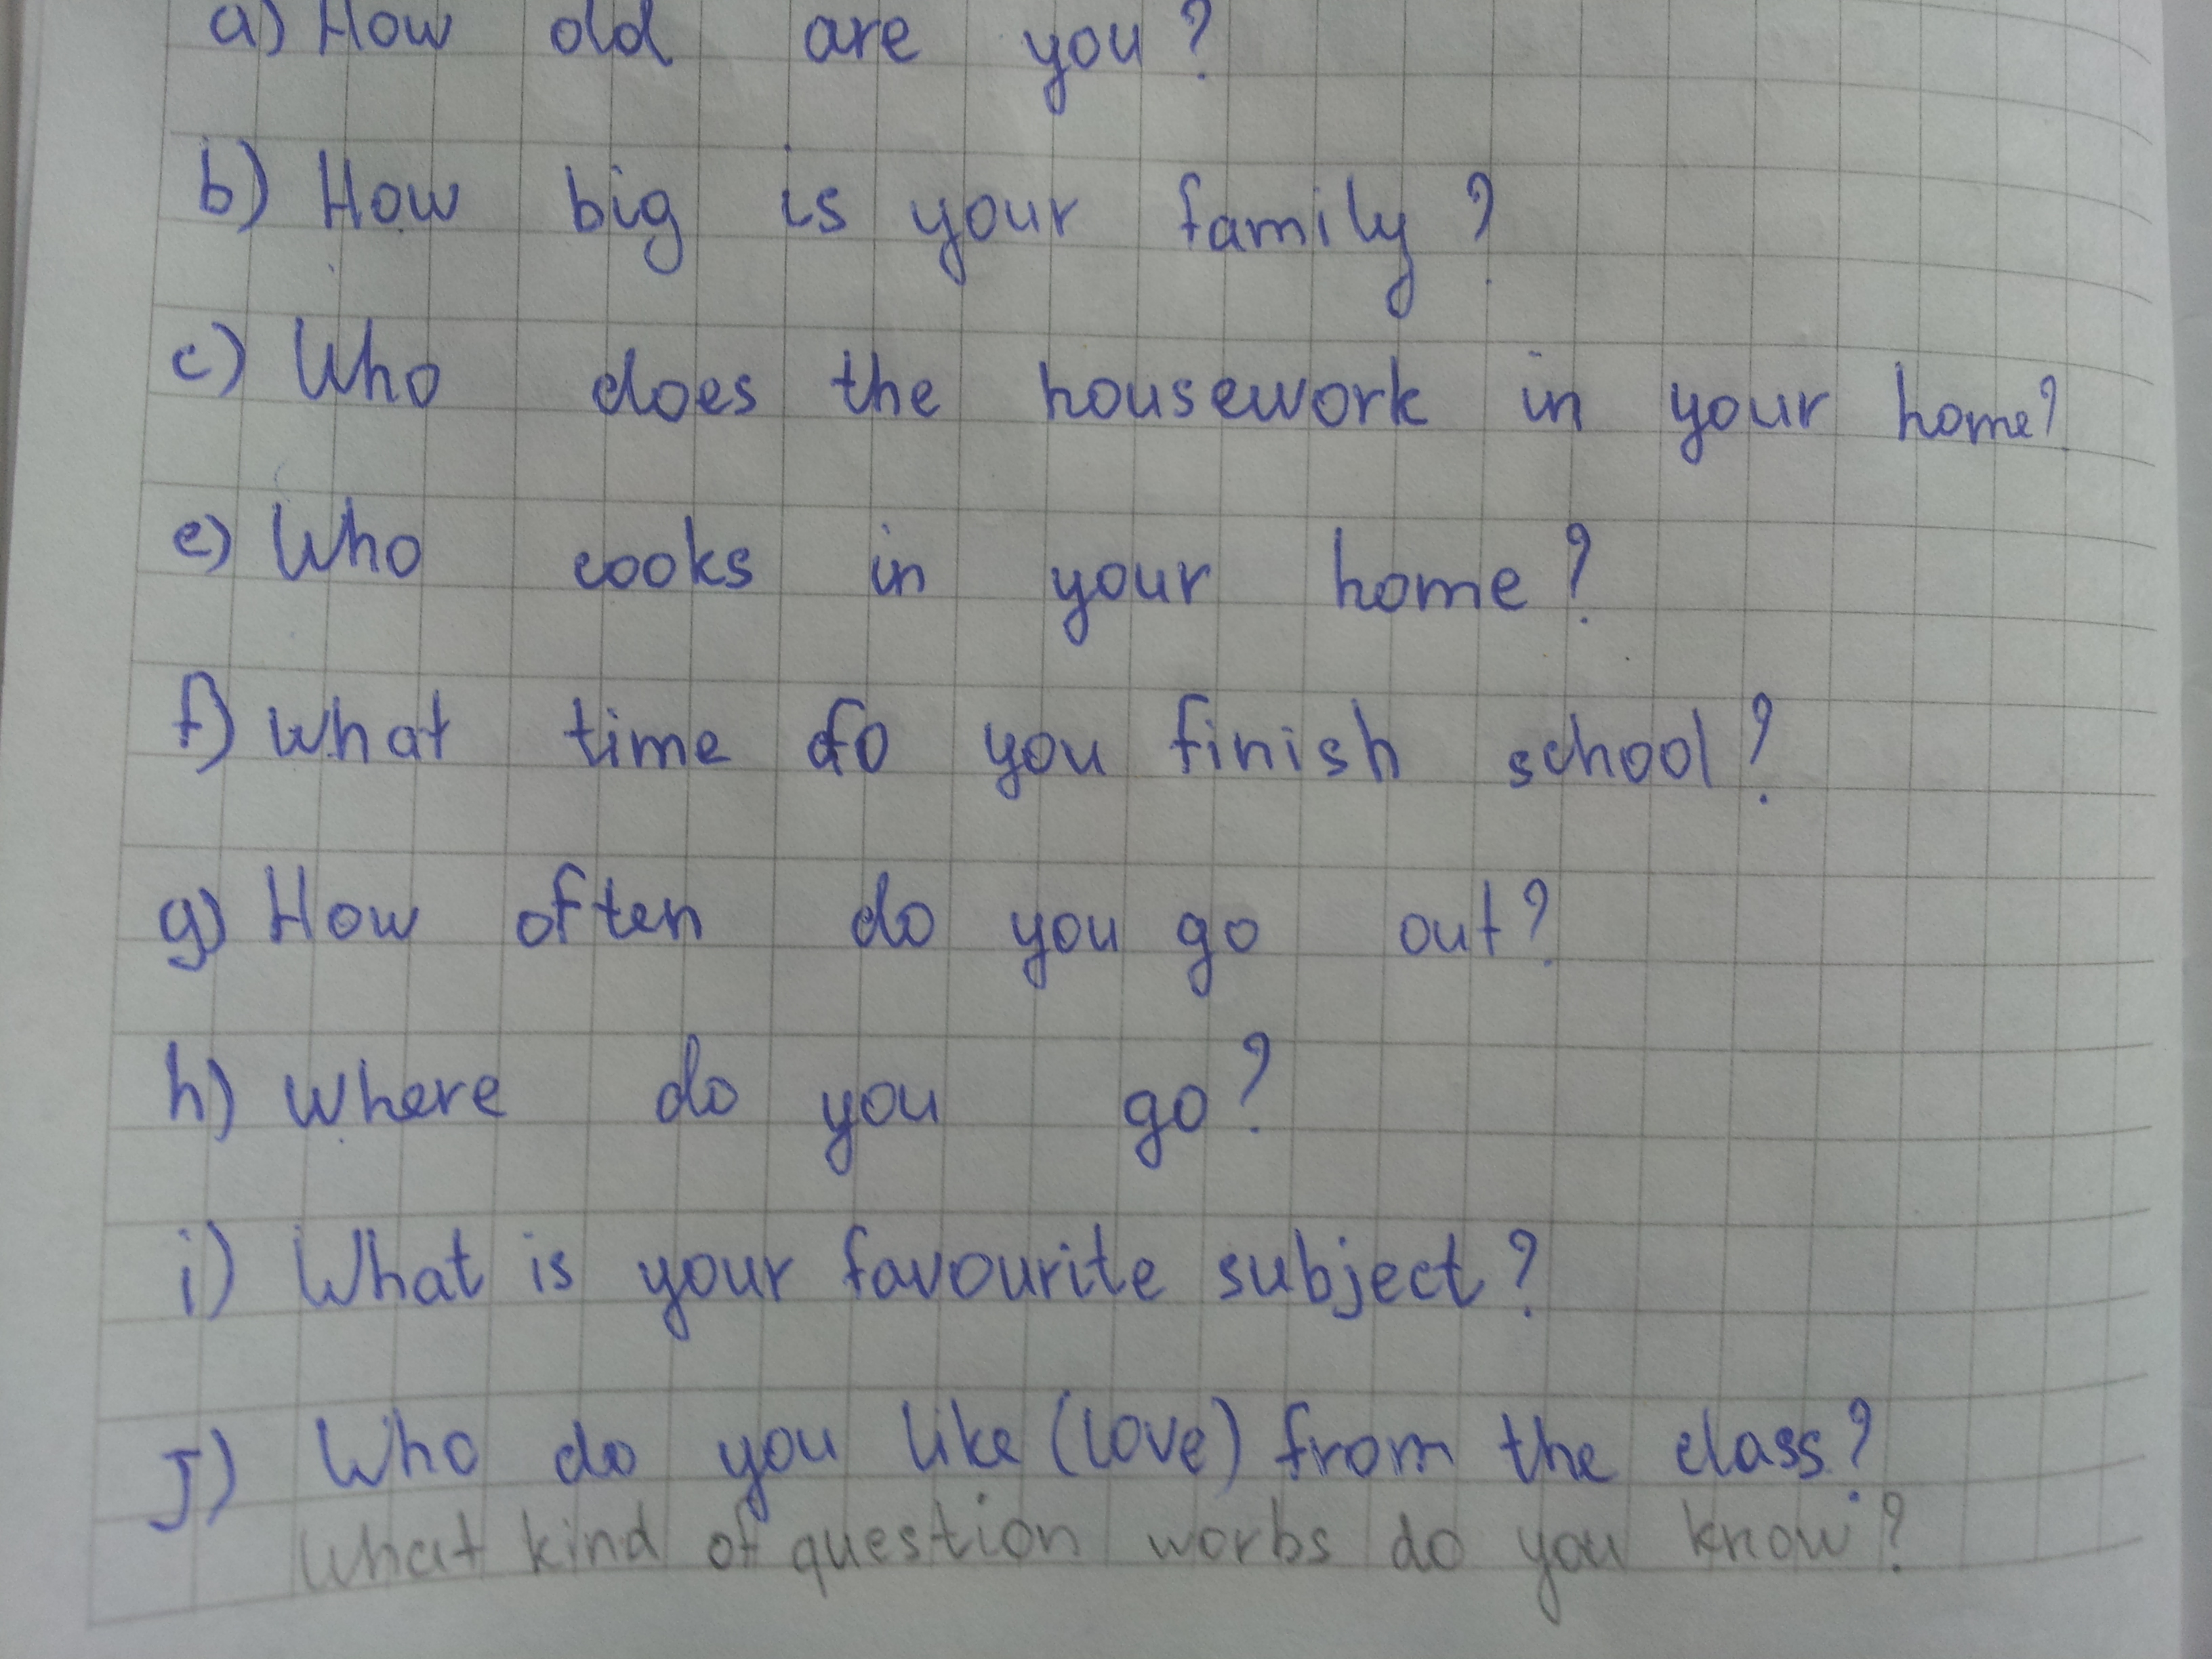 a) How old are you?
b) How big is your family?
c) Who does the housework in your home?
e) Who cooks in your home?
f) what time do you finish school?
g) How often do you go out?
h) where do you go?
i) What is your favourite subject?
J) Who do you like (love) from the class?
What kind of question worbs do you know?